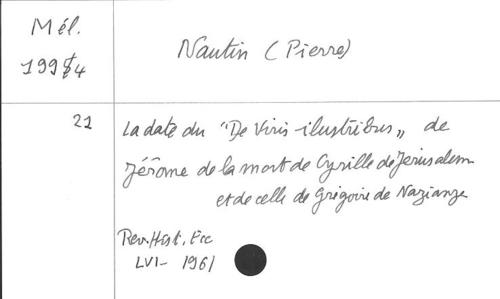 Mél.
1994
Nautin (Pierre)
21
La date du "De Viris-ilustribus„ de
Jérôme de la mort de Cyrille de Jérusalem
et de celle de Grégoire de Nazianze
Rev. Hist. Ecc
LVI - 1961